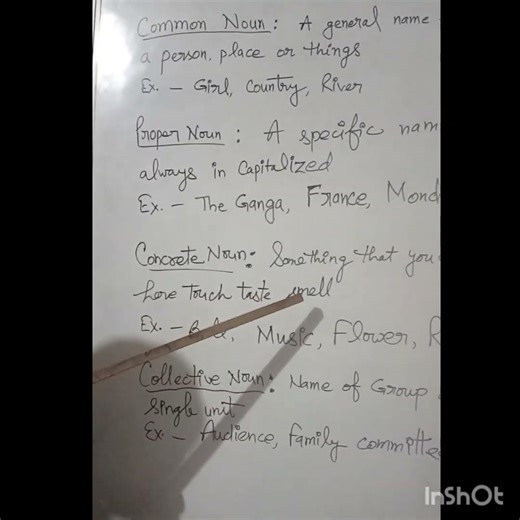 Common Noun: A general name
a person, place or things
Ex. - Girl, Country, River
Proper Noun: A specific nam
always in Capitalized
Ex. - The Ganga, France, Mond
Concrete Noun: Something that you
here touch taste smell
Ex. - Music, Flower, R
Collective Noun: Name of Group
single unit
Ex. - Audience, family committe
InShOt